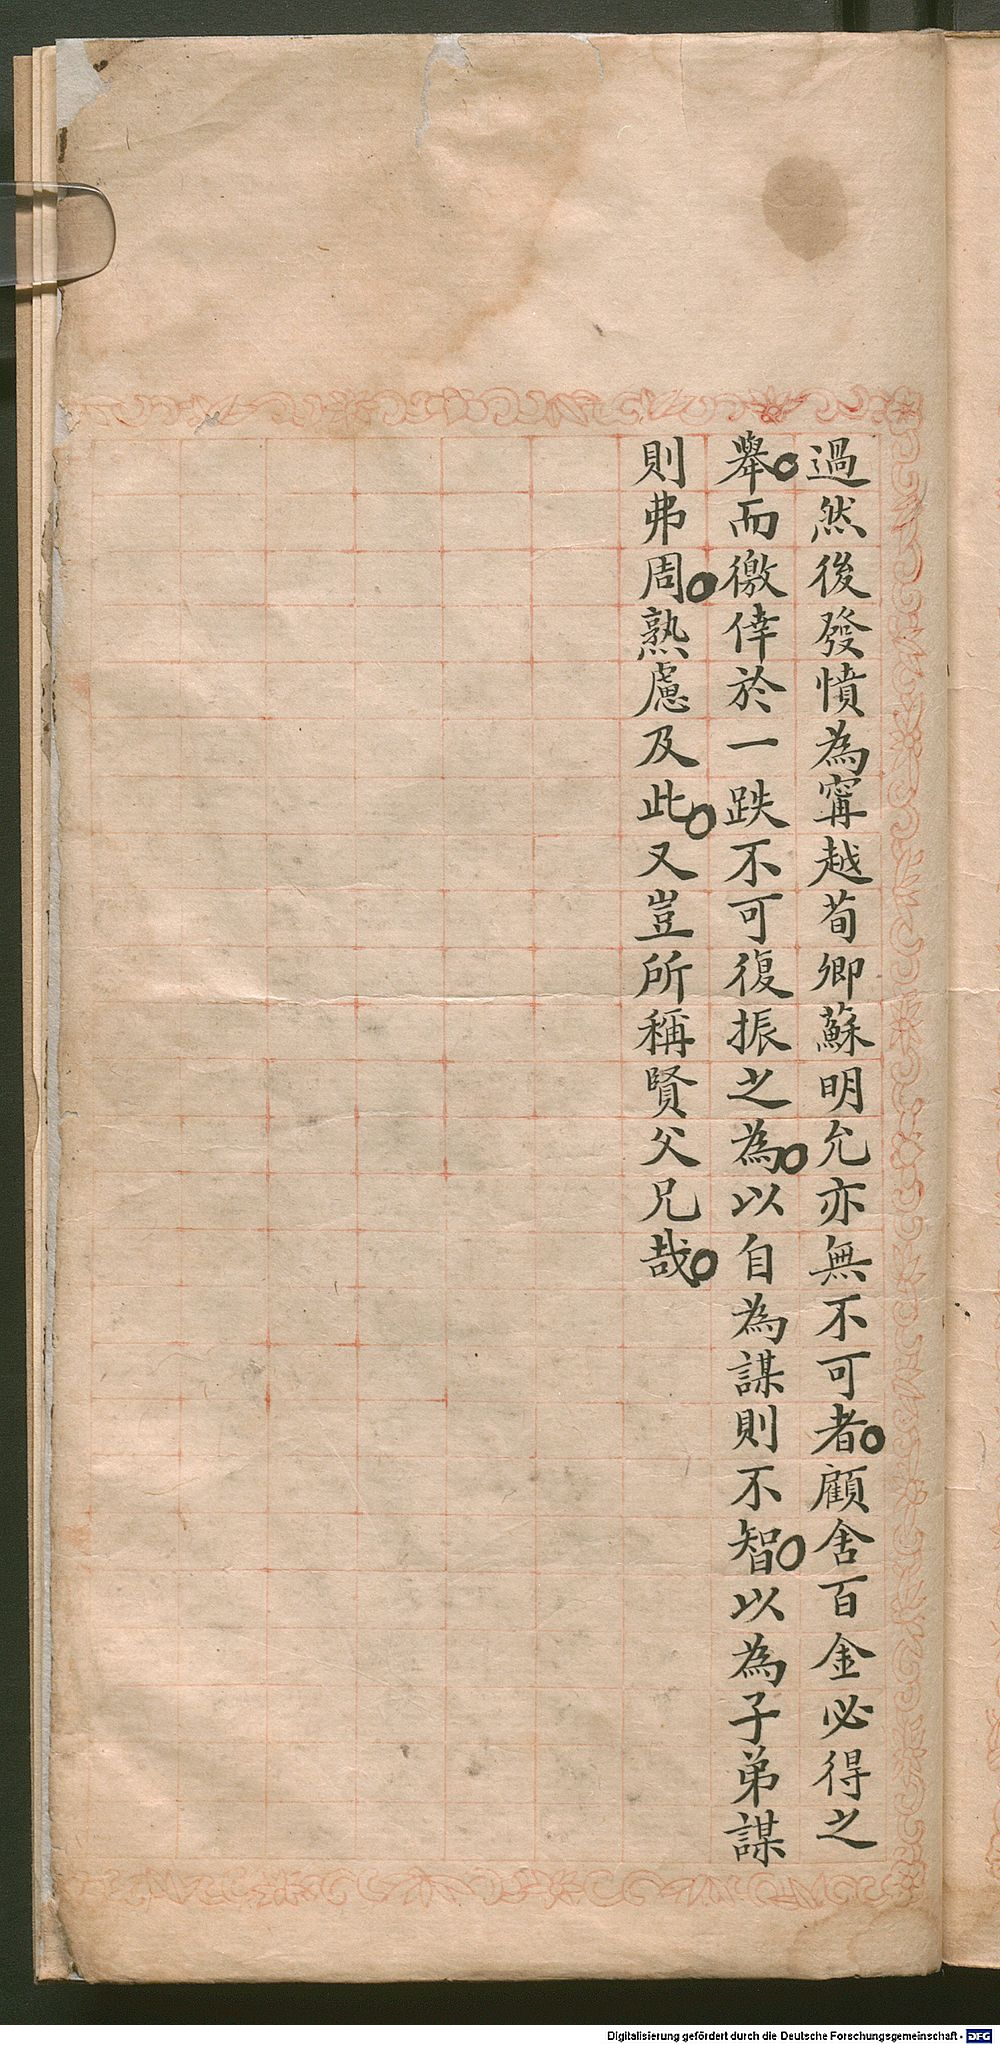 過然後發憤為寗越荀卿蘇明允亦無不可者。顧舍百金必得之
舉。而徼倖於一跌不可復振之為。以自為謀則不智。以為子弟謀
則弗周。熟慮及此。又豈所稱賢父兄哉。
Digitalisierung gefördert durch die Deutsche Forschungsgemeinschaft - DFG